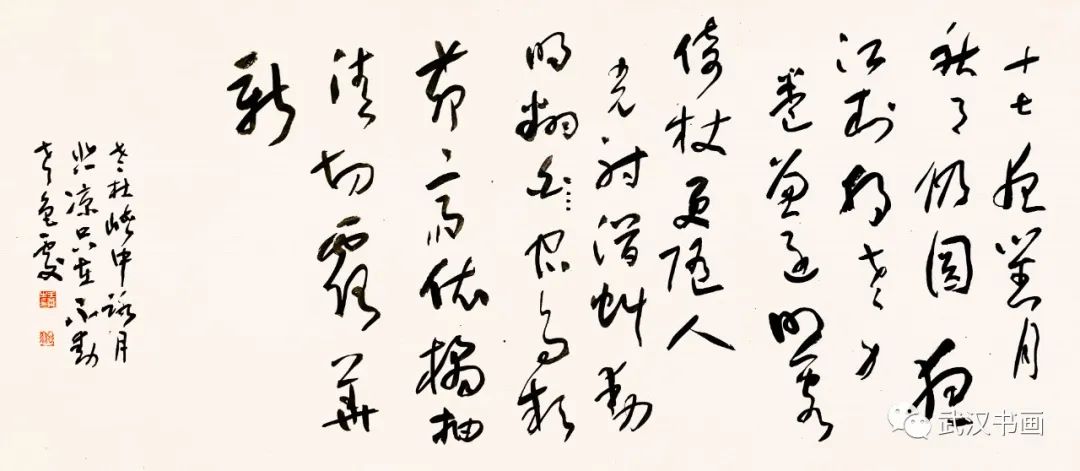 十七夜對月
秋月仍圓夜
江村獨老身
卷簾還照客
倚杖更隨人
光射潛虯動
明翻宿鳥頻
茅齋依橘柚
清切露華
新
老杜峽中詠月
悲凉只在不動
聲色處
武汉书画